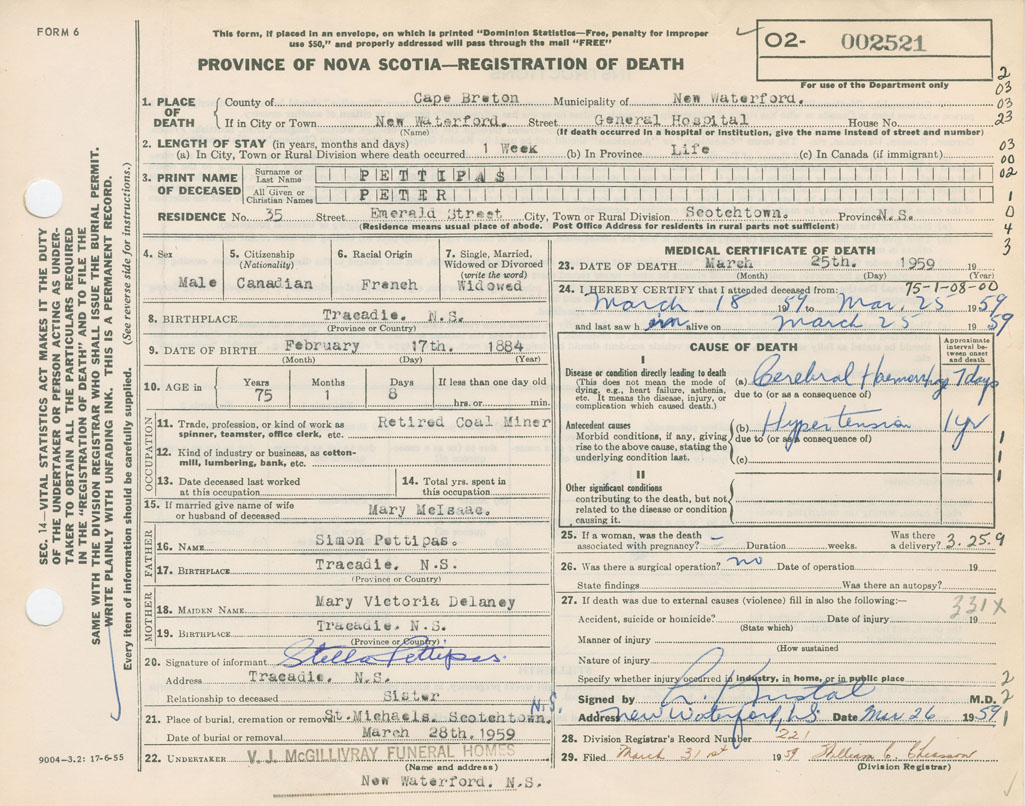 FORM 6
This form, if placed in an envelope, on which is printed "Dominion Statistics—Free, penalty for improper
use $50," and properly addressed will pass through the mail "FREE"
PROVINCE OF NOVA SCOTIA—REGISTRATION OF DEATH
02- 002521
For use of the Department only
2
03
03
23
03
00
02
1
0
4
3
1. PLACE OF DEATH
County of Cape Breton Municipality of New Waterford.
If in City or Town New Waterford. Street General Hospital House No.
(Name) (If death occurred in a hospital or institution, give the name instead of street and number)
2. LENGTH OF STAY (in years, months and days)
(a) In City, Town or Rural Division where death occurred 1 Week (b) In Province Life (c) In Canada (if immigrant)
3. PRINT NAME OF DECEASED
Surname or Last Name PETTIPAS
All Given or Christian Names PETER
RESIDENCE No. 35 Street Emerald Street City, Town or Rural Division Scotchtown. Province N.S.
(Residence means usual place of abode. Post Office Address for residents in rural parts not sufficient)
4. Sex Male
5. Citizenship (Nationality) Canadian
6. Racial Origin French
7. Single, Married, Widowed or Divorced (write the word) Widowed
8. BIRTHPLACE Tracadie. N.S.
(Province or Country)
9. DATE OF BIRTH February 17th. 1884
(Month) (Day) (Year)
10. AGE in Years 75 Months 1 Days 8 If less than one day old hrs. or min.
OCCUPATION
11. Trade, profession, or kind of work as spinner, teamster, office clerk, etc. Retired Coal Miner
12. Kind of industry or business, as cotton-mill, lumbering, bank, etc.
13. Date deceased last worked at this occupation
14. Total yrs. spent in this occupation
15. If married give name of wife or husband of deceased Mary McIsaac.
FATHER
16. NAME Simon Pettipas.
17. BIRTHPLACE Tracadie. N.S.
(Province or Country)
MOTHER
18. MAIDEN NAME Mary Victoria Delaney
19. BIRTHPLACE Tracadie. N.S.
(Province or Country)
20. Signature of informant Stella Pettipas.
Address Tracadie. N.S.
Relationship to deceased Sister
21. Place of burial, cremation or removal St.Michaels. Scotchtown. N.S.
Date of burial or removal March 28th.1959
22. UNDERTAKER V. J. McGILLIVRAY FUNERAL HOMES
(Name and address)
New Waterford. N.S.
9004-3.2: 17-6-55
MEDICAL CERTIFICATE OF DEATH
23. DATE OF DEATH March 25th. 1959 19
(Month) (Day) (Year)
75-1-08-00
24. I HEREBY CERTIFY that I attended deceased from:
March 18 59 to Mar. 25 1959
and last saw h im alive on March 25 1959
CAUSE OF DEATH
Approximate interval between onset and death
I
Disease or condition directly leading to death
(This does not mean the mode of dying, e.g., heart failure, asthenia, etc. It means the disease, injury, or complication which caused death.)
(a) Cerebral Haemorrhage 7 days
due to (or as a consequence of)
Antecedent causes
Morbid conditions, if any, giving rise to the above cause, stating the underlying condition last.
(b) Hypertension 1 yr
due to (or as a consequence of)
(c)
1
1
1
II
Other significant conditions
contributing to the death, but not related to the disease or condition causing it.
25. If a woman, was the death associated with pregnancy? - Duration weeks. Was there a delivery? 3.25.9
26. Was there a surgical operation? no Date of operation 19
State findings Was there an autopsy?
27. If death was due to external causes (violence) fill in also the following:— 331X
Accident, suicide or homicide? Date of injury 19
(State which)
Manner of injury
(How sustained
Nature of injury
Specify whether injury occurred in industry, in home, or in public place 2
Signed by M.D. 2
Address New Waterford, N.S Date Mar 26 1959 1
28. Division Registrar's Record Number 221
29. Filed March 31st 1959 William C. Chiasson
(Division Registrar)
SEC. 14—VITAL STATISTICS ACT MAKES IT THE DUTY
OF THE UNDERTAKER OR PERSON ACTING AS UNDER-
TAKER TO OBTAIN ALL THE PARTICULARS REQUIRED
IN THE "REGISTRATION OF DEATH" AND TO FILE THE
SAME WITH THE DIVISION REGISTRAR WHO SHALL ISSUE THE BURIAL PERMIT.
WRITE PLAINLY WITH UNFADING INK. THIS IS A PERMANENT RECORD.
Every item of information should be carefully supplied. (See reverse side for instructions.)